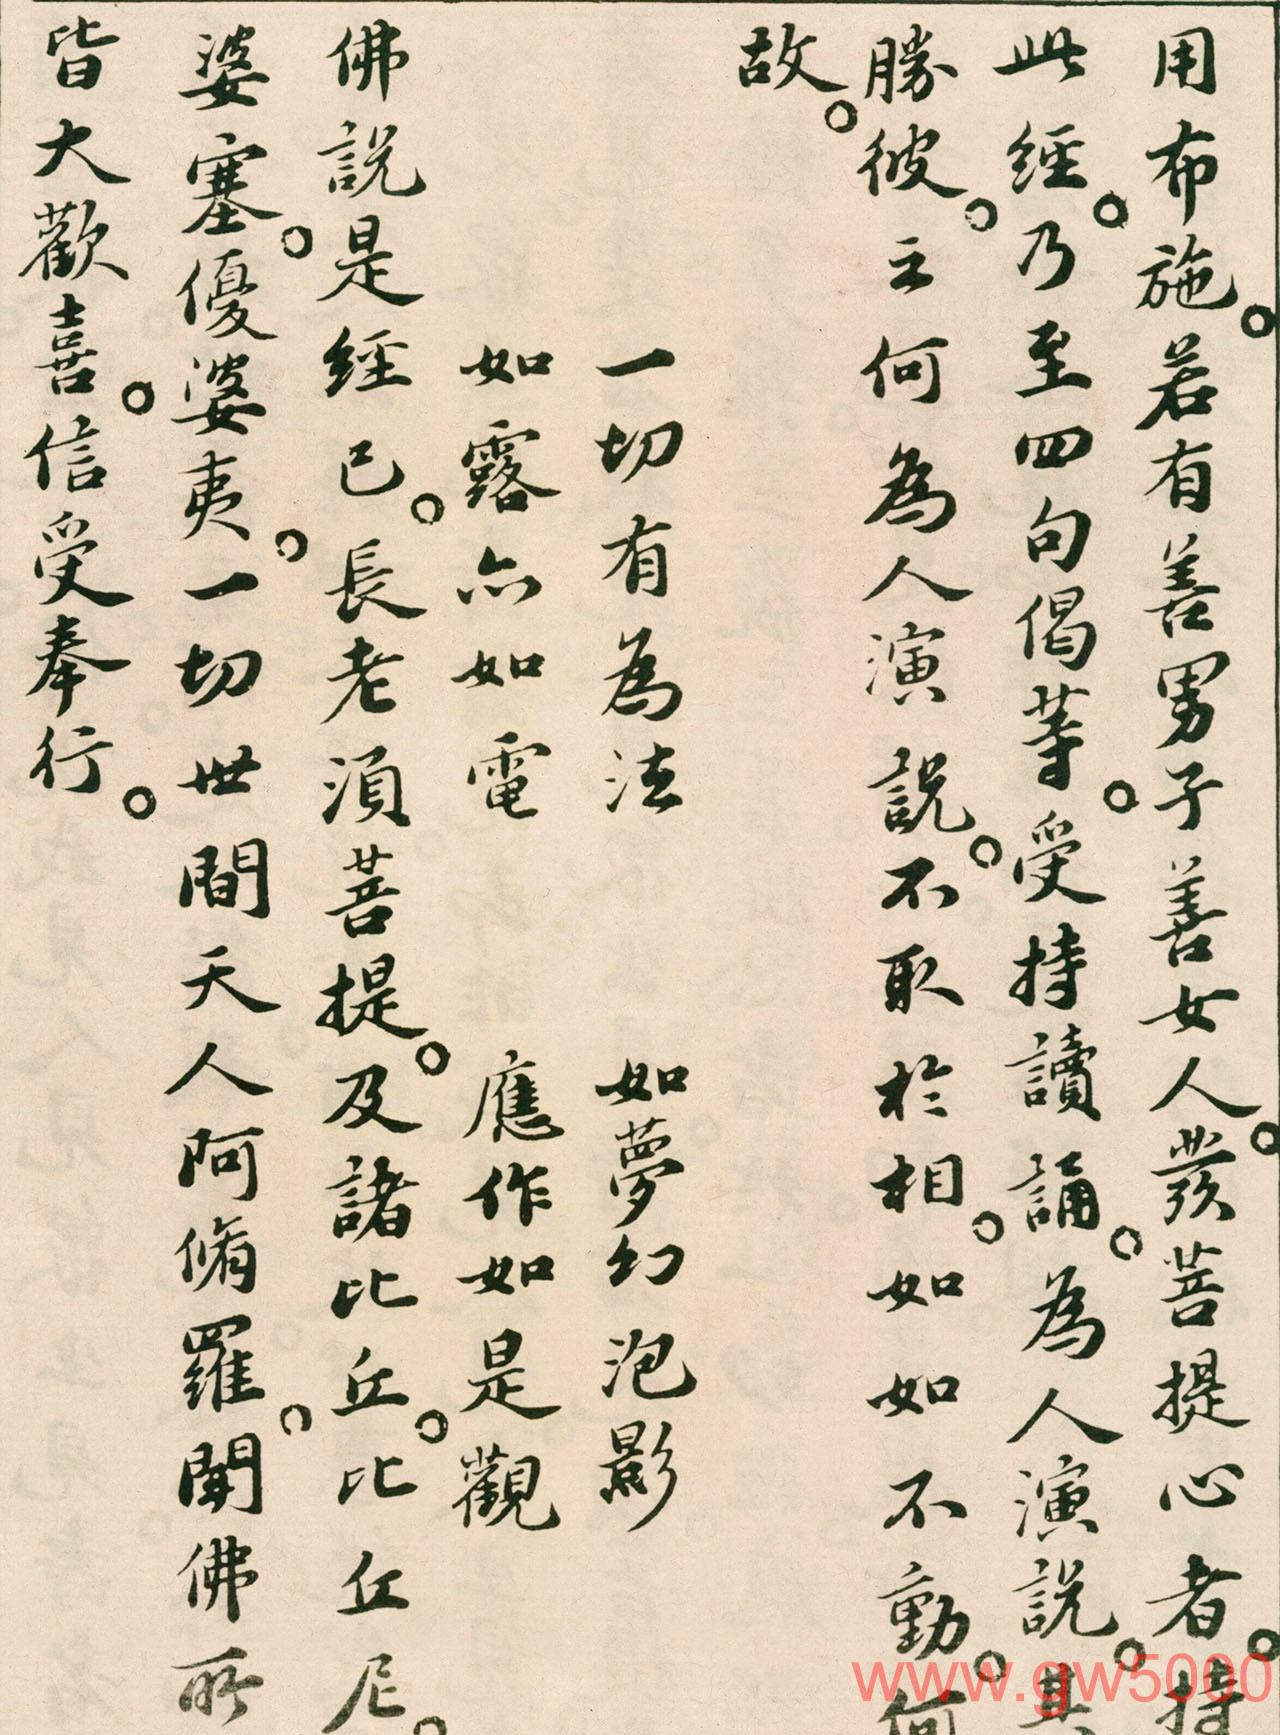 用布施。若有善男子善女人。發菩提心者。持
此經。乃至四句偈等。受持讀誦。為人演說。其
勝彼。云何為人演說。不取於相。如如不動。何
故。
一切有為法 如夢幻泡影
如露亦如電 應作如是觀
佛說是經已。長老須菩提。及諸比丘。比丘尼。
婆塞。優婆夷。一切世間天人阿脩羅。聞佛所
皆大歡喜。信受奉行。
www.gw5000